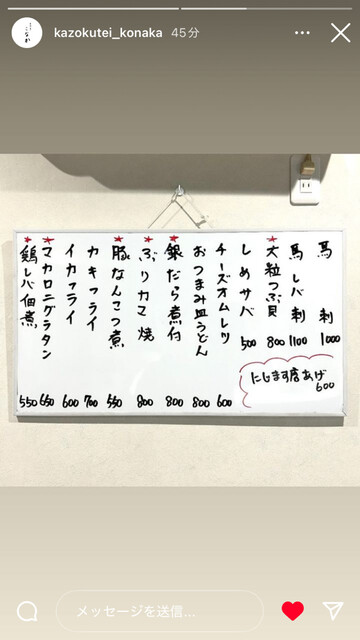 こなか
kazokutei_konaka 45分
馬刺 1000
馬レバ刺 1100
★大粒つぶ貝 800
しめサバ 500
チーズオムレツ 600
おつまみ皿うどん 800
★銀だら煮付 800
★ぶりカマ焼 800
★豚なんこつ煮 550
カキフライ 700
イカフライ 600
★マカロニグラタン 650
★鶏レバ佃煮 550
にじます唐あげ
600
メッセージを送信...